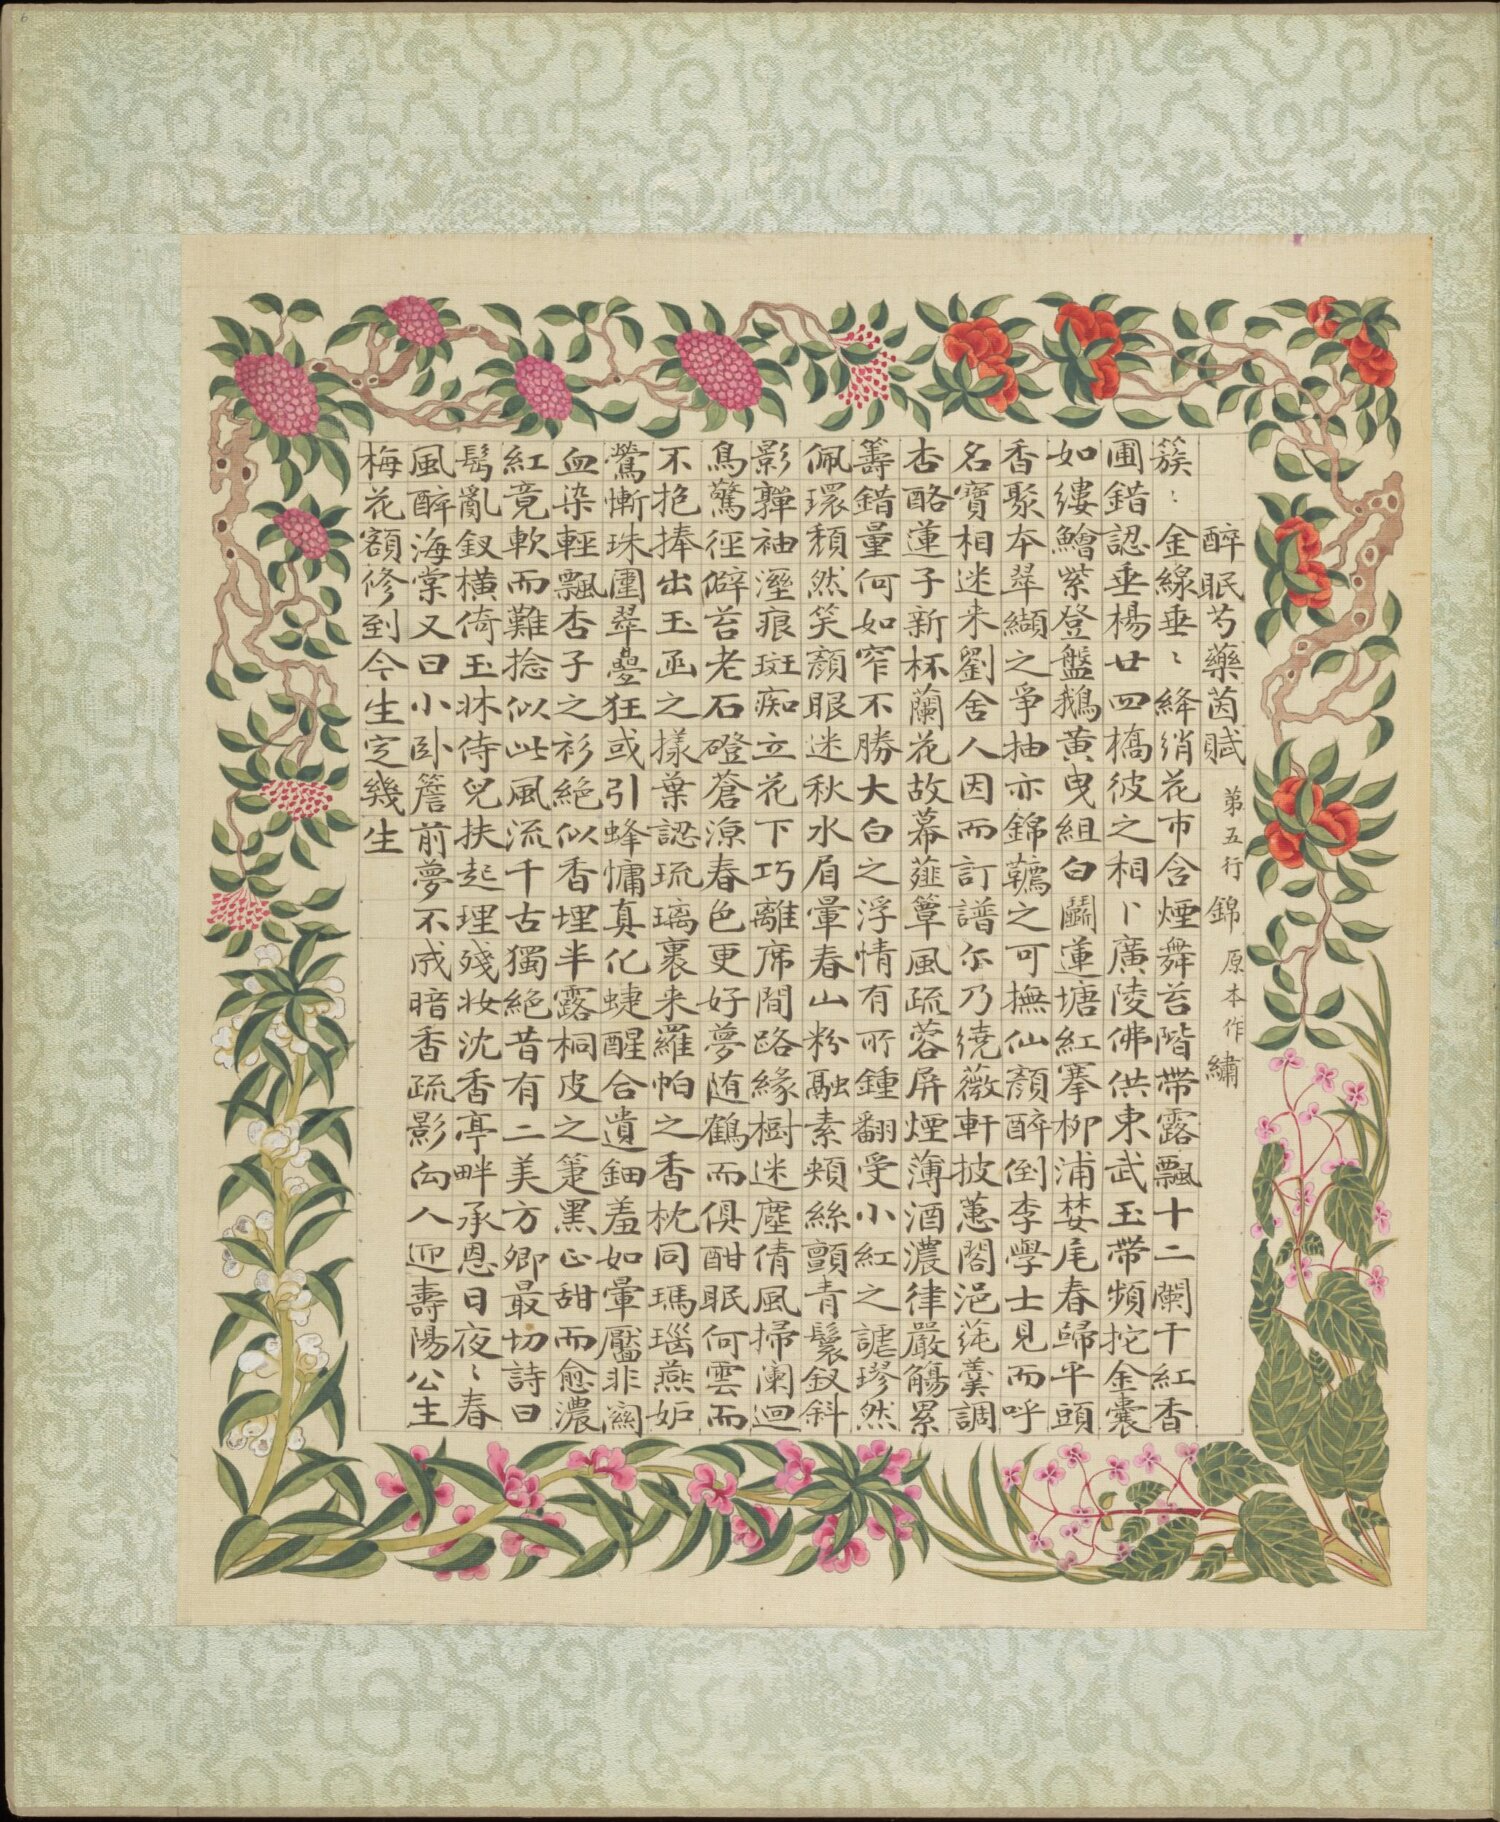 醉眠芍藥茵賦 第五行錦原本作繡
簇〻金線垂〻絳綃花市含煙舞苔階帶露飄十二闌干紅香
圃錯認垂楊廿四橋彼之相卜廣陵佛供東武玉帶頻拕金囊
如縷鱠紫登盤鵝黃曳組白鬬蓮塘紅搴柳浦婪尾春歸平頭
香聚夲翠纈之爭抽亦錦韉之可撫仙顏醉倒李學士見而呼
名寶相迷来劉舍人因而訂譜尓乃繞薇軒披蕙閣浥蒓羹調
杏酪蓮子新杯蘭花故幕薤簟風疏蓉屏煙薄酒濃律嚴觴累
籌錯量何如窄不勝大白之浮情有所鍾翻受小紅之謔璆然
佩環頹然笑顏眼迷秋水眉暈春山粉融素頰絲顫青鬟釵斜
影嚲袖溼痕斑痴立花下巧離席間路緣樹迷塵倩風掃闌迴
鳥驚徑僻苔老石磴蒼涼春色更好夢随鶴而俱酣眠何雲而
不抱捧出玉函之樣葉認琉璃裹来羅帕之香枕同瑪瑙燕妬
鶯慚珠圍翠疊狂或引蜂慵真化蜨醒合遺鈿羞如暈靨非闕
血染輕飄杏子之衫絶似香埋半露桐皮之箑黑正甜而愈濃
紅竟軟而難捻似此風流千古獨絕昔有二美方卿最切詩曰
鬅亂釵橫倚玉牀侍兒扶起理殘妝沈香亭畔承恩日夜〻春
風醉海棠又曰小卧簷前夢不成暗香疏影向人迎壽陽公主
梅花額修到今生定幾生